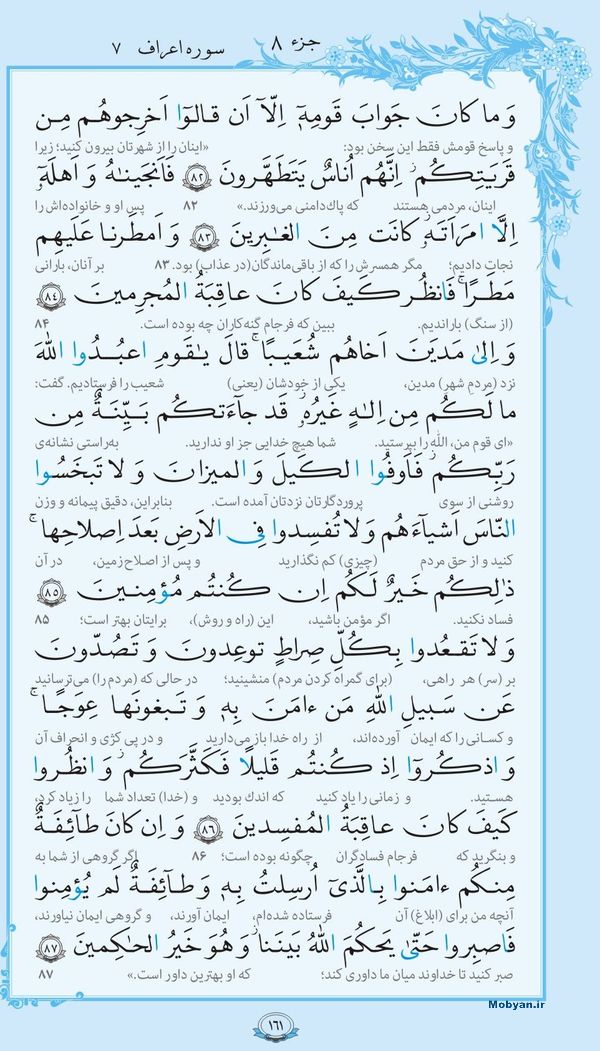 جزء ۸
سوره اعراف ۷
وَ ما كانَ جَوابَ قَومِهٖ اِلّآ اَن قالوٓا اَخرِجوهُم مِن
و پاسخ قومش فقط این سخن بود: «اینان را از شهرتان بیرون کنید؛ زیرا
قَريَتِكُم اِنَّهُم اُناسٌ يَتَطَهَّرونَ ٨٢ فَاَنجَيناهُ وَ اَهلَهٗٓ
اینان، مردمی هستند که پاک‌دامنی می‌ورزند.» ۸۲ پس او و خانواده‌اش را
اِلَّا امرَاَتَهٗ كانَت مِنَ الغابِرينَ ٨٣ وَ اَمطَرنا عَلَيهِم
نجات دادیم؛ مگر همسرش را که از باقی‌ماندگان (در عذاب) بود. ۸۳ بر آنان، بارانی
مَطَرًا فَانظُر كَيفَ كانَ عاقِبَةُ المُجرِمينَ ٨٤
(از سنگ) باراندیم. ببین که فرجام گنه‌کاران چه بوده است. ۸۴
وَ اِلىٰ مَديَنَ اَخاهُم شُعَيبًا قالَ يٰقَومِ اعبُدُوا اللهَ
نزد (مردم شهر) مدین، یکی از خودشان (یعنی) شعیب را فرستادیم. گفت:
ما لَكُم مِن اِلٰهٍ غَيرُهٗ قَد جآءَتكُم بَيِّنَةٌ مِن
«ای قوم من، الله را بپرستید. شما هیچ خدایی جز او ندارید. به‌راستی نشانه‌ی
رَبِّكُم فَاَوفُوا الكَيلَ وَ الميزانَ وَ لا تَبخَسُوا
روشنی از سوی پروردگارتان نزدتان آمده است. بنابراین، دقیق پیمانه و وزن
النّاسَ اَشيآءَهُم وَ لا تُفسِدوا فِي الاَرضِ بَعدَ اِصلاحِها
کنید و از حق مردم (چیزی) کم نگذارید و پس از اصلاح زمین، در آن
ذٰلِكُم خَيرٌ لَكُم اِن كُنتُم مُؤمِنينَ ٨٥
فساد نکنید. اگر مؤمن باشید، این (راه و روش)، برایتان بهتر است؛ ۸۵
وَ لا تَقعُدوا بِكُلِّ صِراطٍ توعِدونَ وَ تَصُدّونَ
بر (سر) هر راهی، (برای گمراه کردن مردم) منشینید؛ در حالی که (مردم را) می‌ترسانید
عَن سَبيلِ اللهِ مَن ءامَنَ بِهٖ وَ تَبغونَها عِوَجًا
و کسانی را که ایمان آورده‌اند، از راه خدا باز می‌دارید و در پی کژی و انحراف آن
وَ اذكُروٓا اِذ كُنتُم قَليلًا فَكَثَّرَكُم وَ انظُروا
هستید. و زمانی را یاد کنید که اندک بودید و (خدا) تعداد شما را زیاد کرد،
كَيفَ كانَ عاقِبَةُ المُفسِدينَ ٨٦ وَ اِن كانَ طآئِفَةٌ
و بنگرید که فرجام فسادگران چگونه بوده است؛ ۸۶ اگر گروهی از شما به
مِنكُم ءامَنوا بِالَّذيٓ اُرسِلتُ بِهٖ وَ طآئِفَةٌ لَم يُؤمِنوا
آنچه من برای (ابلاغ) آن فرستاده شده‌ام، ایمان آورند، و گروهی ایمان نیاورند،
فَاصبِروا حَتّىٰ يَحكُمَ اللهُ بَينَنا وَ هُوَ خَيرُ الحاكِمينَ ٨٧
صبر کنید تا خداوند میان ما داوری کند؛ که او بهترین داور است.» ۸۷
Mobyan.ir
۱۶۱